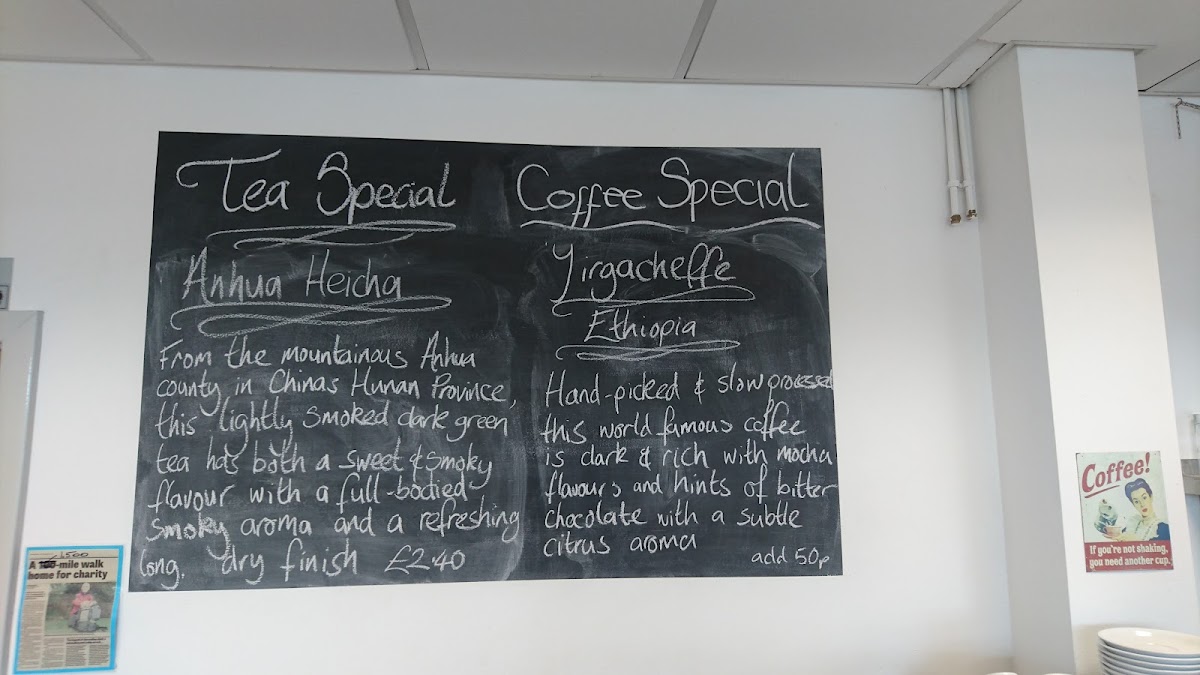 Tea Special
Anhua Heicha
From the mountainous Anhua
county in Chinas Hunan Province,
this lightly smoked dark green
tea has both a sweet & smoky
flavour with a full-bodied
smoky aroma and a refreshing
long, dry finish £2.40
Coffee Special
Yirgacheffe
Ethiopia
Hand-picked & slow processed
this world famous coffee
is dark & rich with mocha
flavours and hints of bitter
chocolate with a subtle
citrus aroma
add 50p
1500
A 100-mile walk
home for charity
Coffee!
If you're not shaking,
you need another cup.